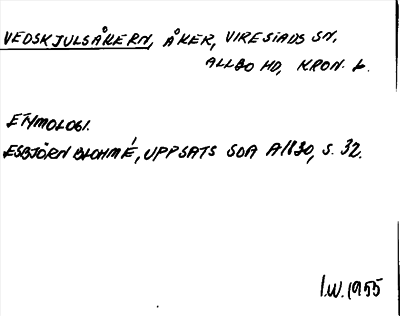 VEDSKJULSÅKERN, ÅKER, VIRESTADS SN,
ALLBO HD, KRON. L.
ETYMOLOGI.
ESBJÖRN BLOHMÉ, UPPSATS SOA A1830, S. 32.
I.W. 1955